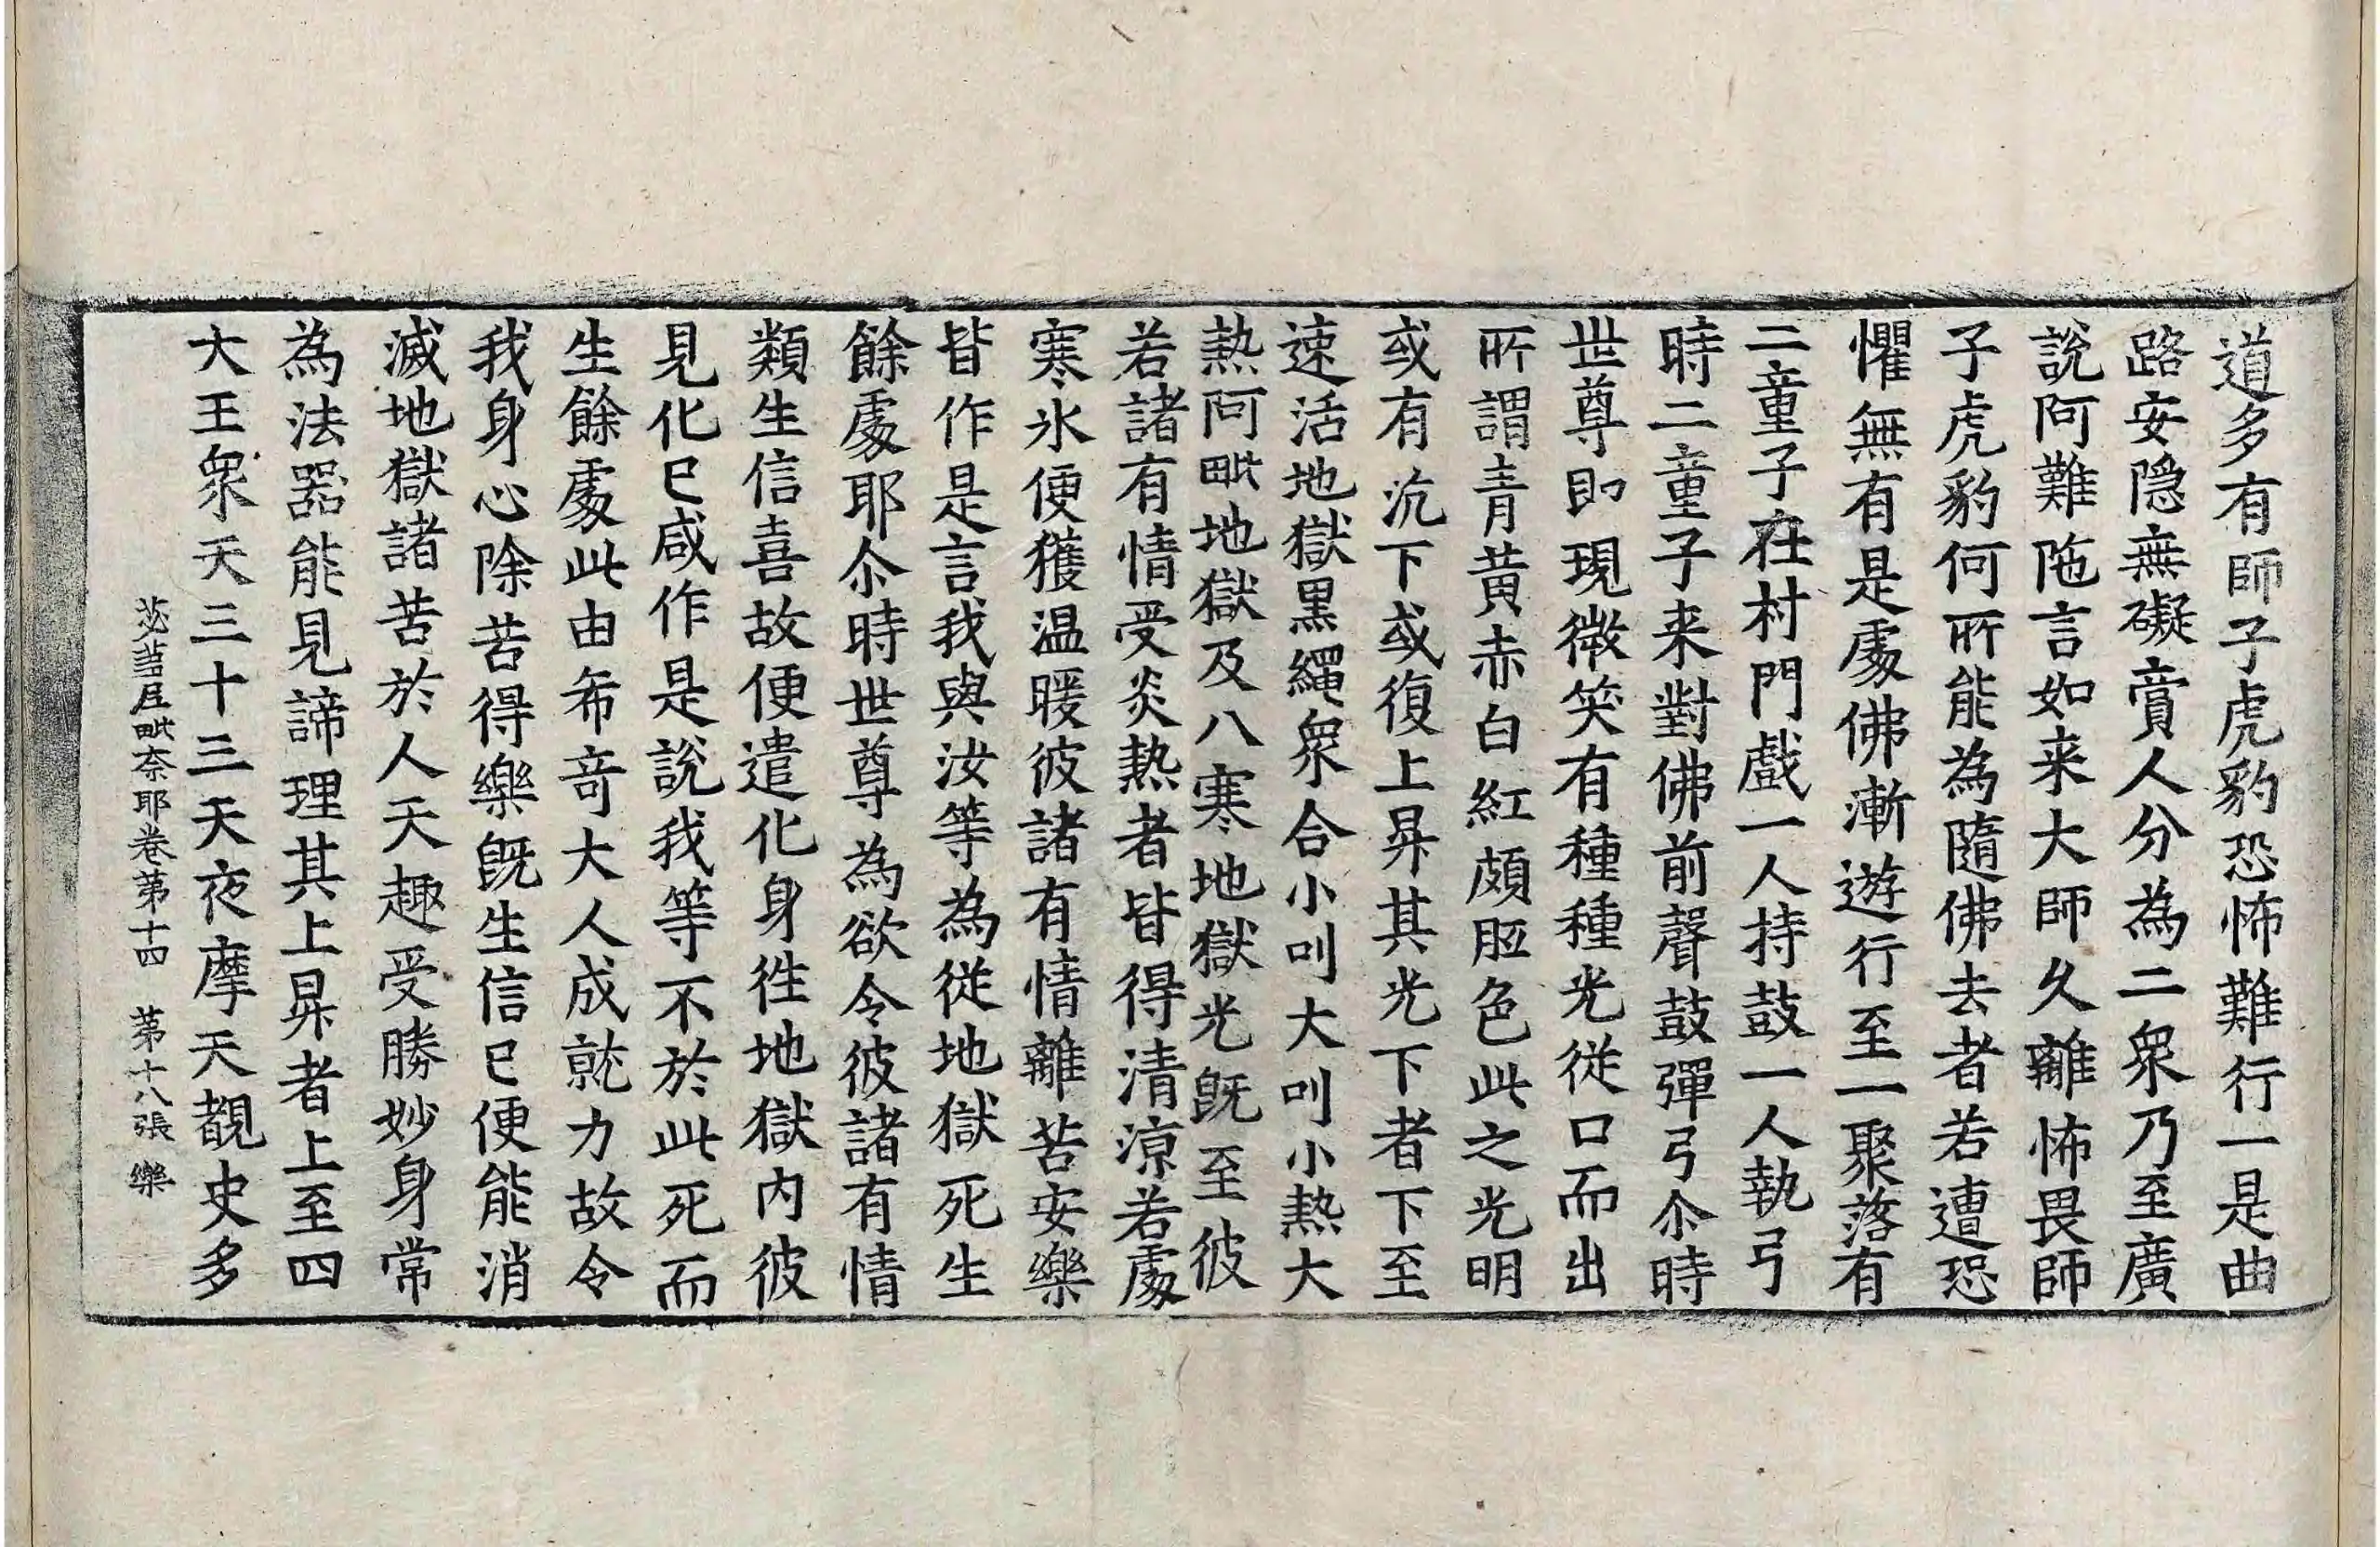 道多有師子虎豹恐怖難行一是曲
路安隐無礙賣人分為二衆乃至廣
說阿難陁言如来大師久離怖畏師
子虎豹何所能為隨佛去者若遭恐
懼無有是處佛漸遊行至一聚落有
二童子在村門戲一人持鼓一人執弓
時二童子来對佛前聲鼓彈弓尒時
世尊即現微笑有種種光從口而出
所謂青黄赤白紅頗胝色此之光明
或有沉下或復上昇其光下者下至
速活地獄黒繩衆合小叫大叫小熱大
熱阿毗地獄及八寒地獄光旣至彼
若諸有情受炎熱者皆得清涼若處
寒氷便獲温暖彼諸有情離苦安樂
皆作是言我與汝等為從地獄死生
餘處耶尒時世尊為欲令彼諸有情
類生信喜故便遣化身徃地獄内彼
見化已咸作是說我等不於此死而
生餘處此由希竒大人成就力故令
我身心除苦得樂旣生信已便能消
滅地獄諸苦於人天趣受勝妙身常
為法器能見諦理其上昇者上至四
大王衆天三十三天夜摩天覩史多
苾芻尼毗奈耶卷第十四　第十八張　樂